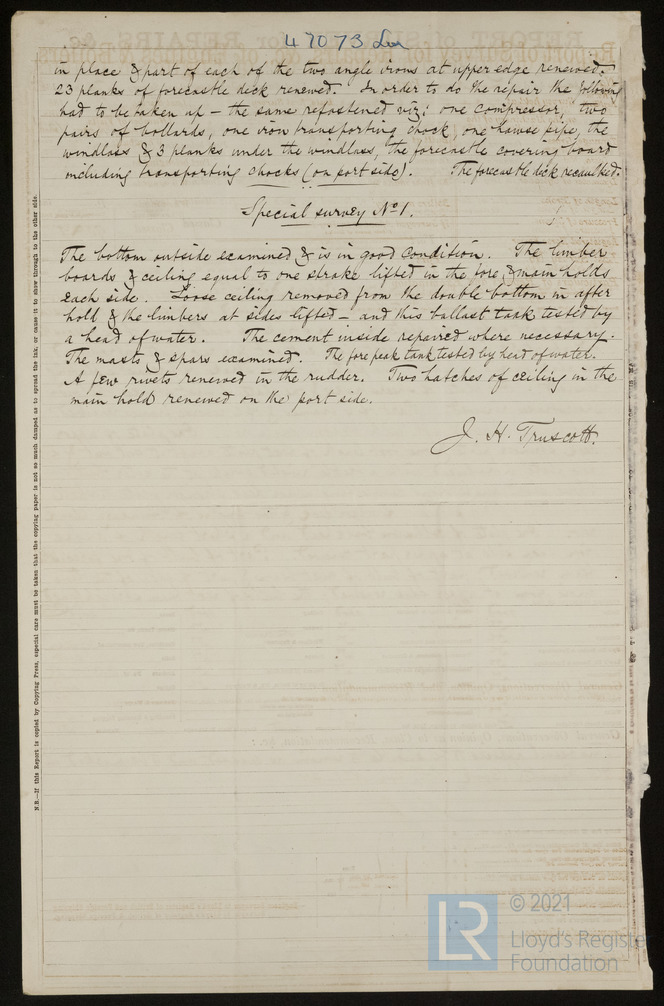 47073 Lon
in place & part of each of the two angle irons at upper edge renewed.
23 planks of forecastle deck renewed. In order to do the repair the following
had to be taken up – the same refastened viz: one compressor, two
pairs of bollards, one iron transporting chock, one hawse pipe, the
windlass & 3 planks under the windlass, the forecastle covering board
including transporting chocks (on port side). The forecastle deck recaulked.
Special survey No 1.
The bottom outside examined & is in good condition. The limber
boards & ceiling equal to one strake lifted in the fore & main holds
each side. Loose ceiling removed from the double bottom in after
hold & the limbers at sides lifted – and this ballast tank tested by
a head of water. The cement inside repaired where necessary.
The masts & spars examined. The fore peak tank tested by head of water.
A few rivets renewed in the rudder. Two hatches of ceiling in the
main hold renewed on the port side.
J. H. Truscott.
N.B.—If this Report is copied by Copying Press, especial care must be taken that the copying paper is not so much damped as to spread the ink, or cause it to show through to the other side.
LR
© 2021
Lloyd's Register
Foundation